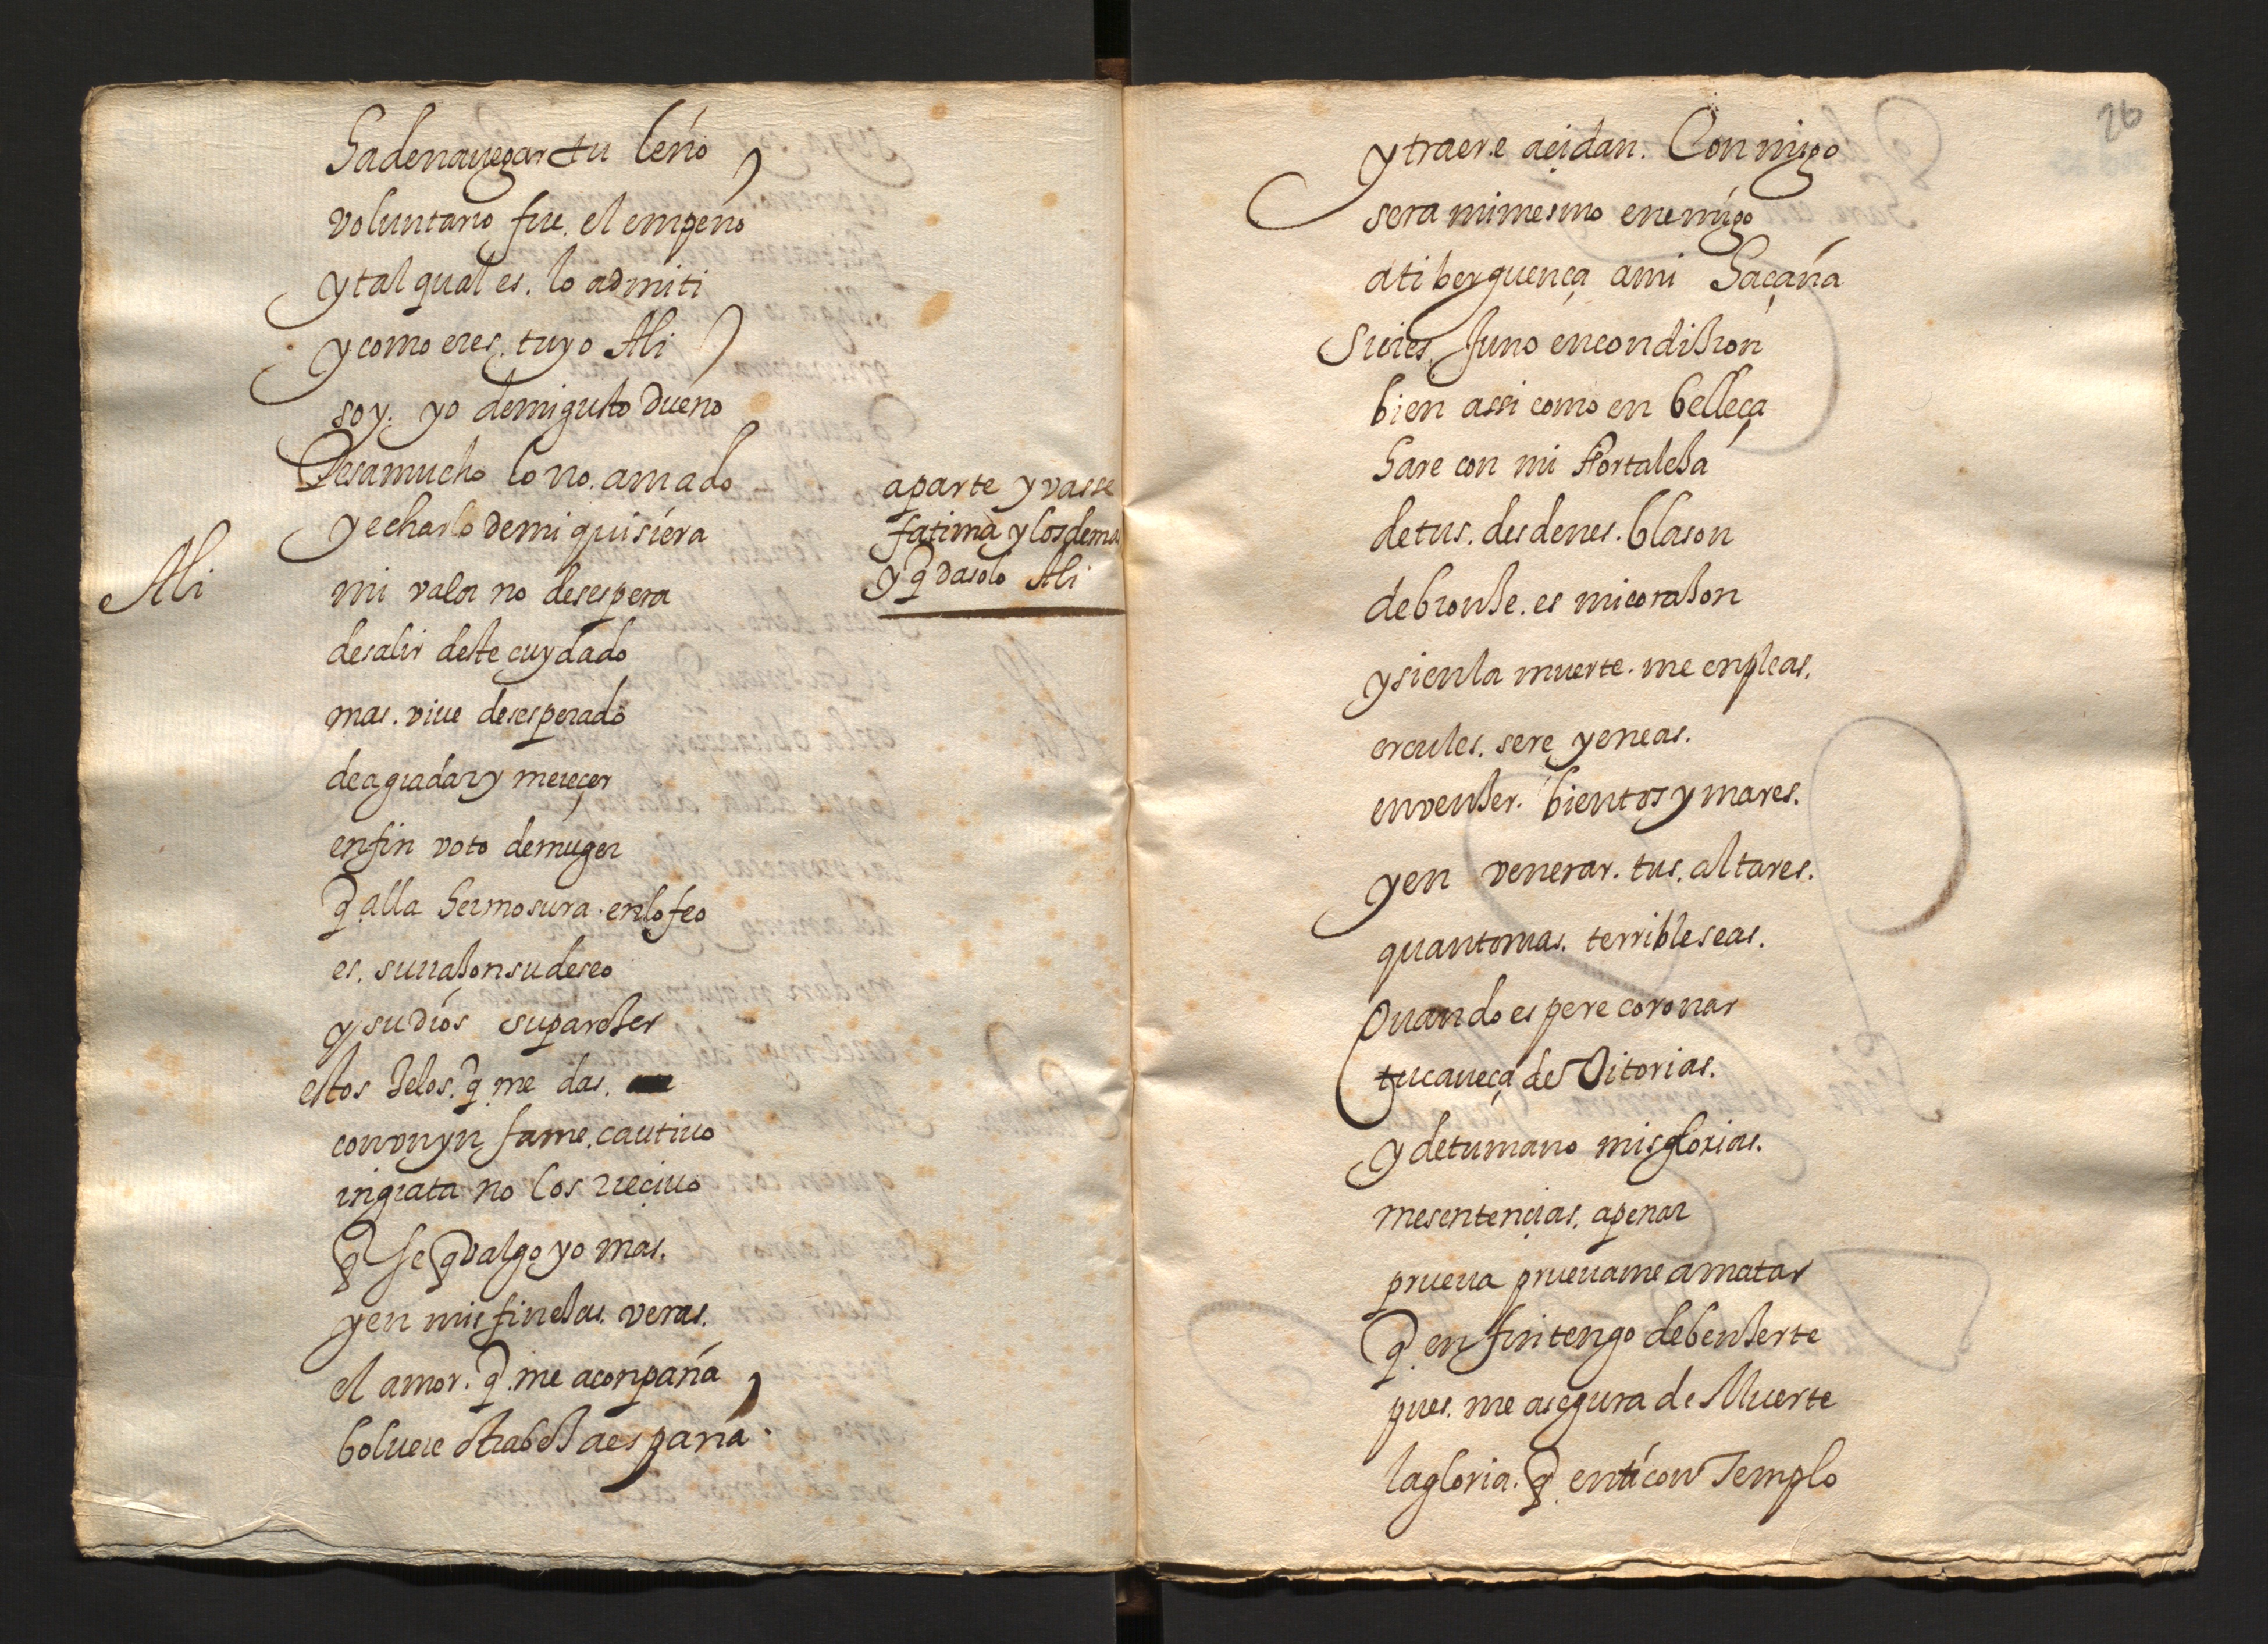 Hadenauegar tu leño
voluntario fue. el empeño
y tal qual es. lo admiti
y como eres. tuyo Ali
soy. yo demigusto dueño
Pesamucho lo no. amado
y echarlo demi quisiera
aparte y vasse
fatima y los dema
y q̃dasolo Ali
Ali
mi valor no desespera
desalir deste cuydado
mas. viue desesperado
deagradar y mereçer
enfin voto demuger
q̃ alla hermosura. enlo feo
es. surazon su deseo
y su dios suparezer
estos zelos. q̃ me das.
con vn yn fame. cautiuo
ingrata no los rreciuo
q̃ se q̃ valgo yo mas.
y en mis finezas. veras.
el amor. q̃. me aconpaña
boluere otrabez aespaña.
26
y traere açidan. Conmigo
sera mimesmo enemigo
ati berguença ami haçaña
Sieres. Juno encondizion
bien assi como en belleça
hare con mi Fortaleza
detus. desdenes. blason
debronze. es micorazon
ysienla muerte. me enpleas.
ercules. sere y eneas.
envenzer. bientos y mares.
yen venerar. tus. altares.
quantomas. terribleseas.
Quando espere coronar
tucaueça de Vitorias.
y detumano misglorias.
mesentençias. apenar
prueua prueuame amatar
q̃. en fin tengo debenzerte
pues. me asegura de Muerte
lagloria. q̃. enti con Templo